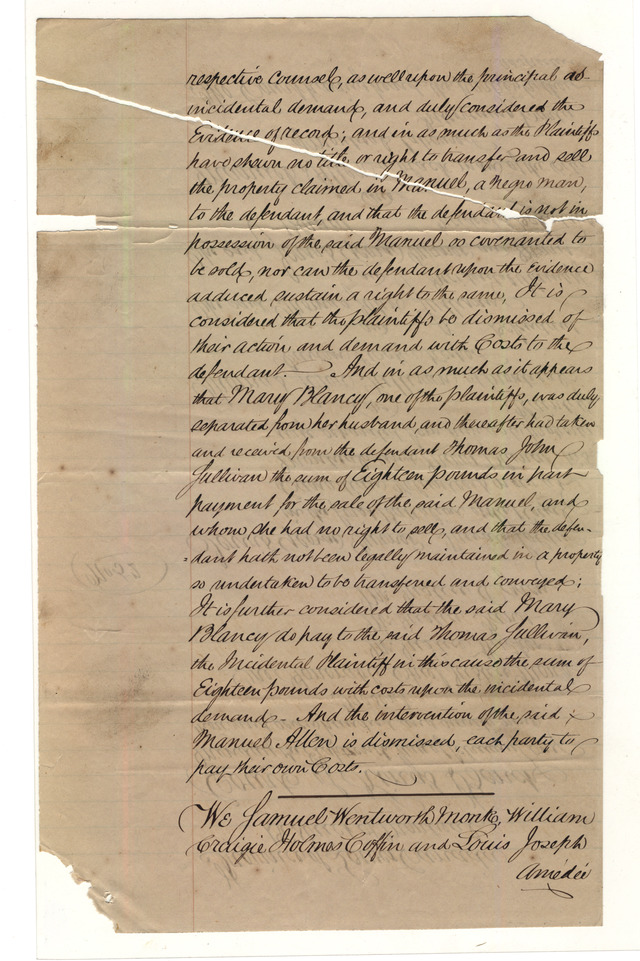 respective counsel, as well upon the principal as
incidental demand, and duly considered the
Evidence of record; and in as much as the Plaintiffs
have shewn no title or right to transfer and sell
the property claimed in Manuel, a Negro man,
to the defendant, and that the defendant is not in
possession of the said Manuel so covenanted to
be sold, nor can the defendant upon the Evidence
adduced sustain a right to the same, It is
considered that the plaintiffs be dismissed of
their action and demand with Costs to the
defendant. And in as much as it appears
that Mary Blancy, one of the plaintiffs, was duly
separated from her husband, and thereafter had taken
and received from the defendant Thomas John
Sullivan the sum of Eighteen pounds in part
payment for the sale of the said Manuel, and
whom she had no right to sell, and that the defen-
-dant hath not been legally maintained in a property
so undertaken to be transferred and conveyed;
It is further considered that the said Mary
Blancy do pay to the said Thomas Sullivan,
the Incidental Plaintiff in this cause the sum of
Eighteen pounds with costs upon the incidental
demand - And the intervention of the said
Manuel Allen is dismissed, each party to
pay their own Costs.
We Samuel Wentworth Monk, William
Craigie Holmes Coffin and Louis Joseph
Amédée